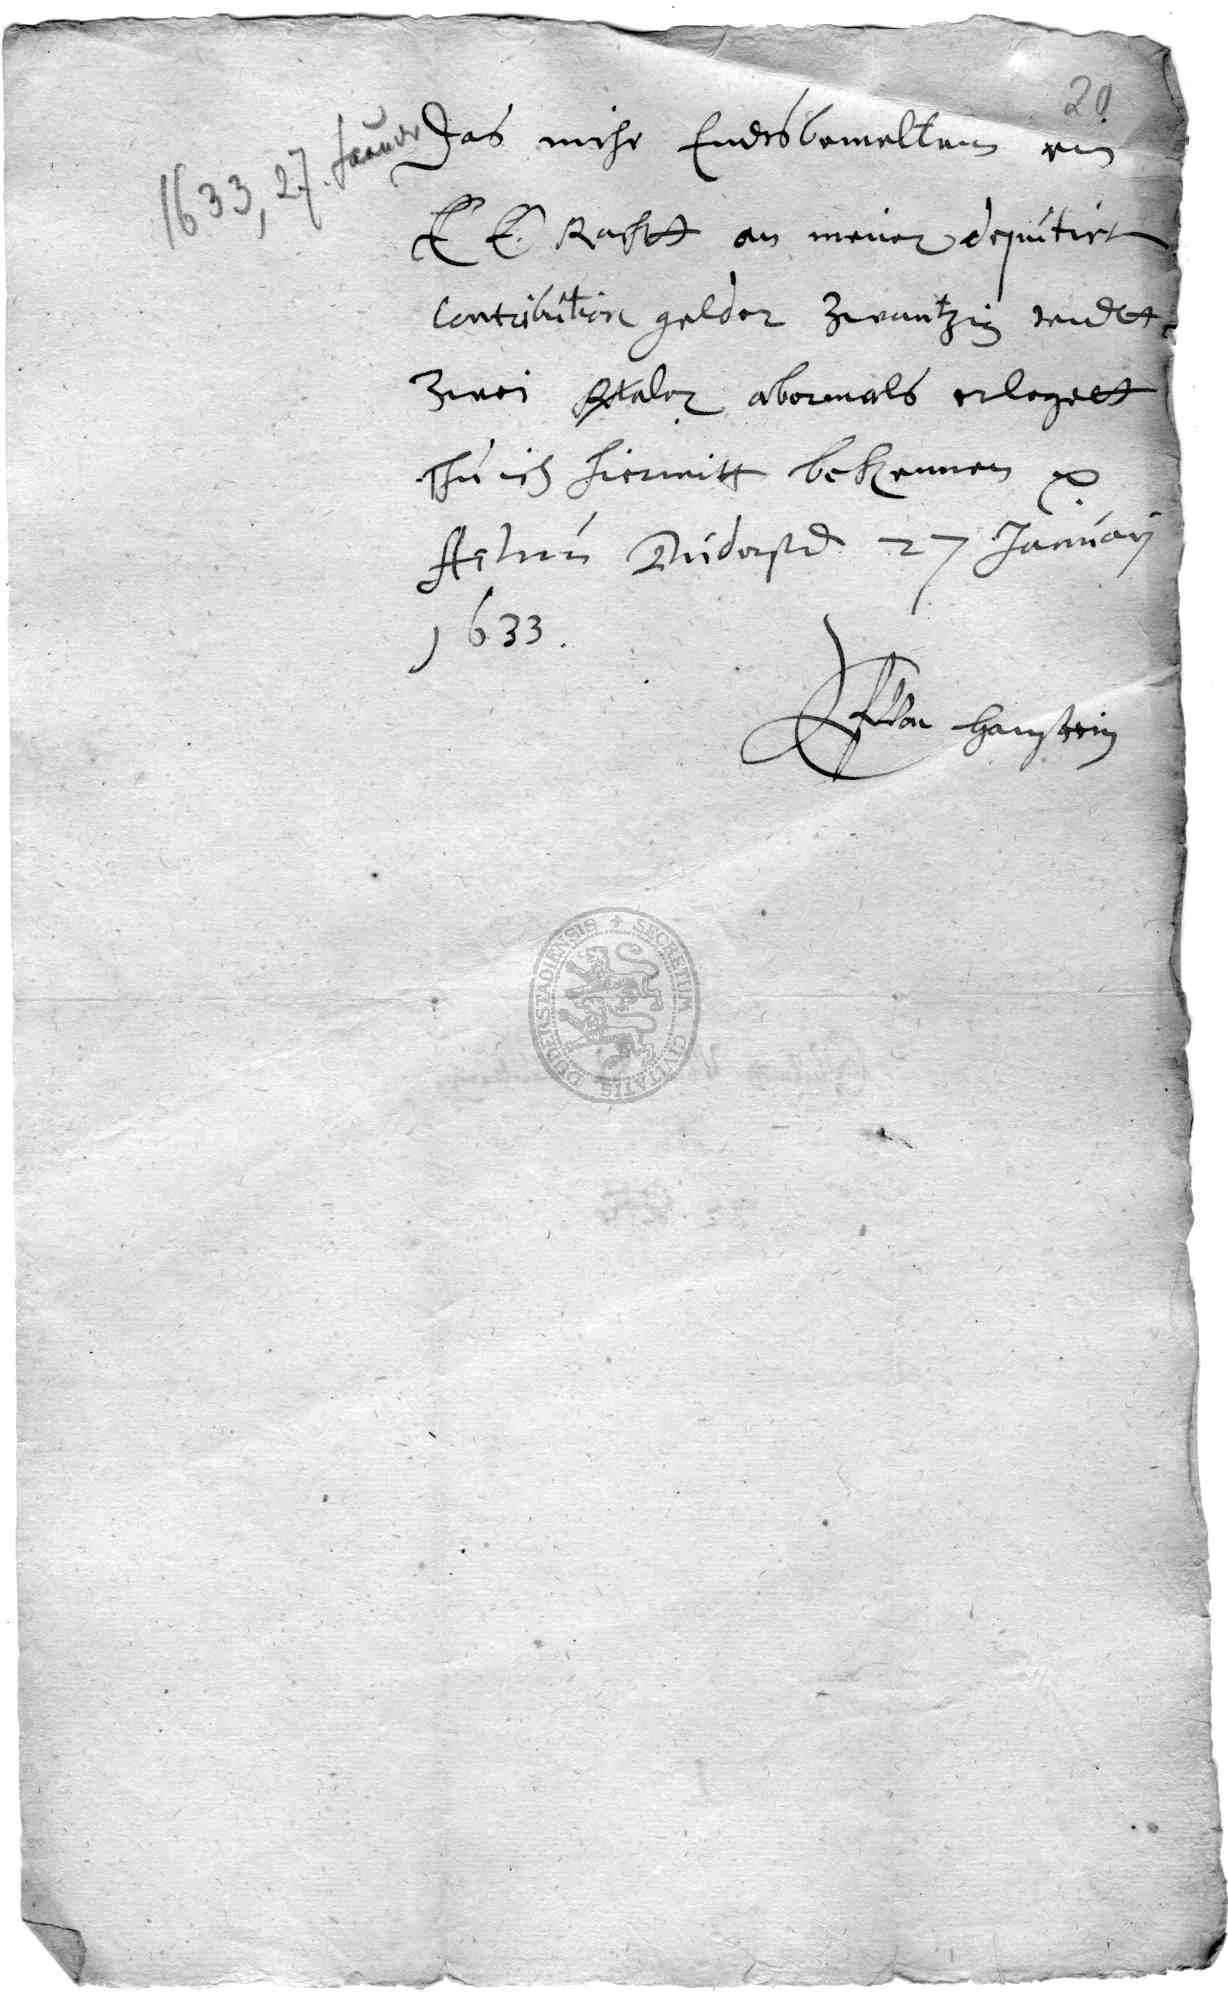 20
1633, 27. Januar
Das mihr Endtsbemeltem ein
E E. Rahtt an meiner deputirt
Contribution gelder Zwantzig undtt
Zwei Rtaler abermals erlegett
Thu ich hiermitt bekennen
Actum Duderstad 27 January
1633.
von Hanstein
SECRETUM CIVITATIS DUDERSTADIENSIS